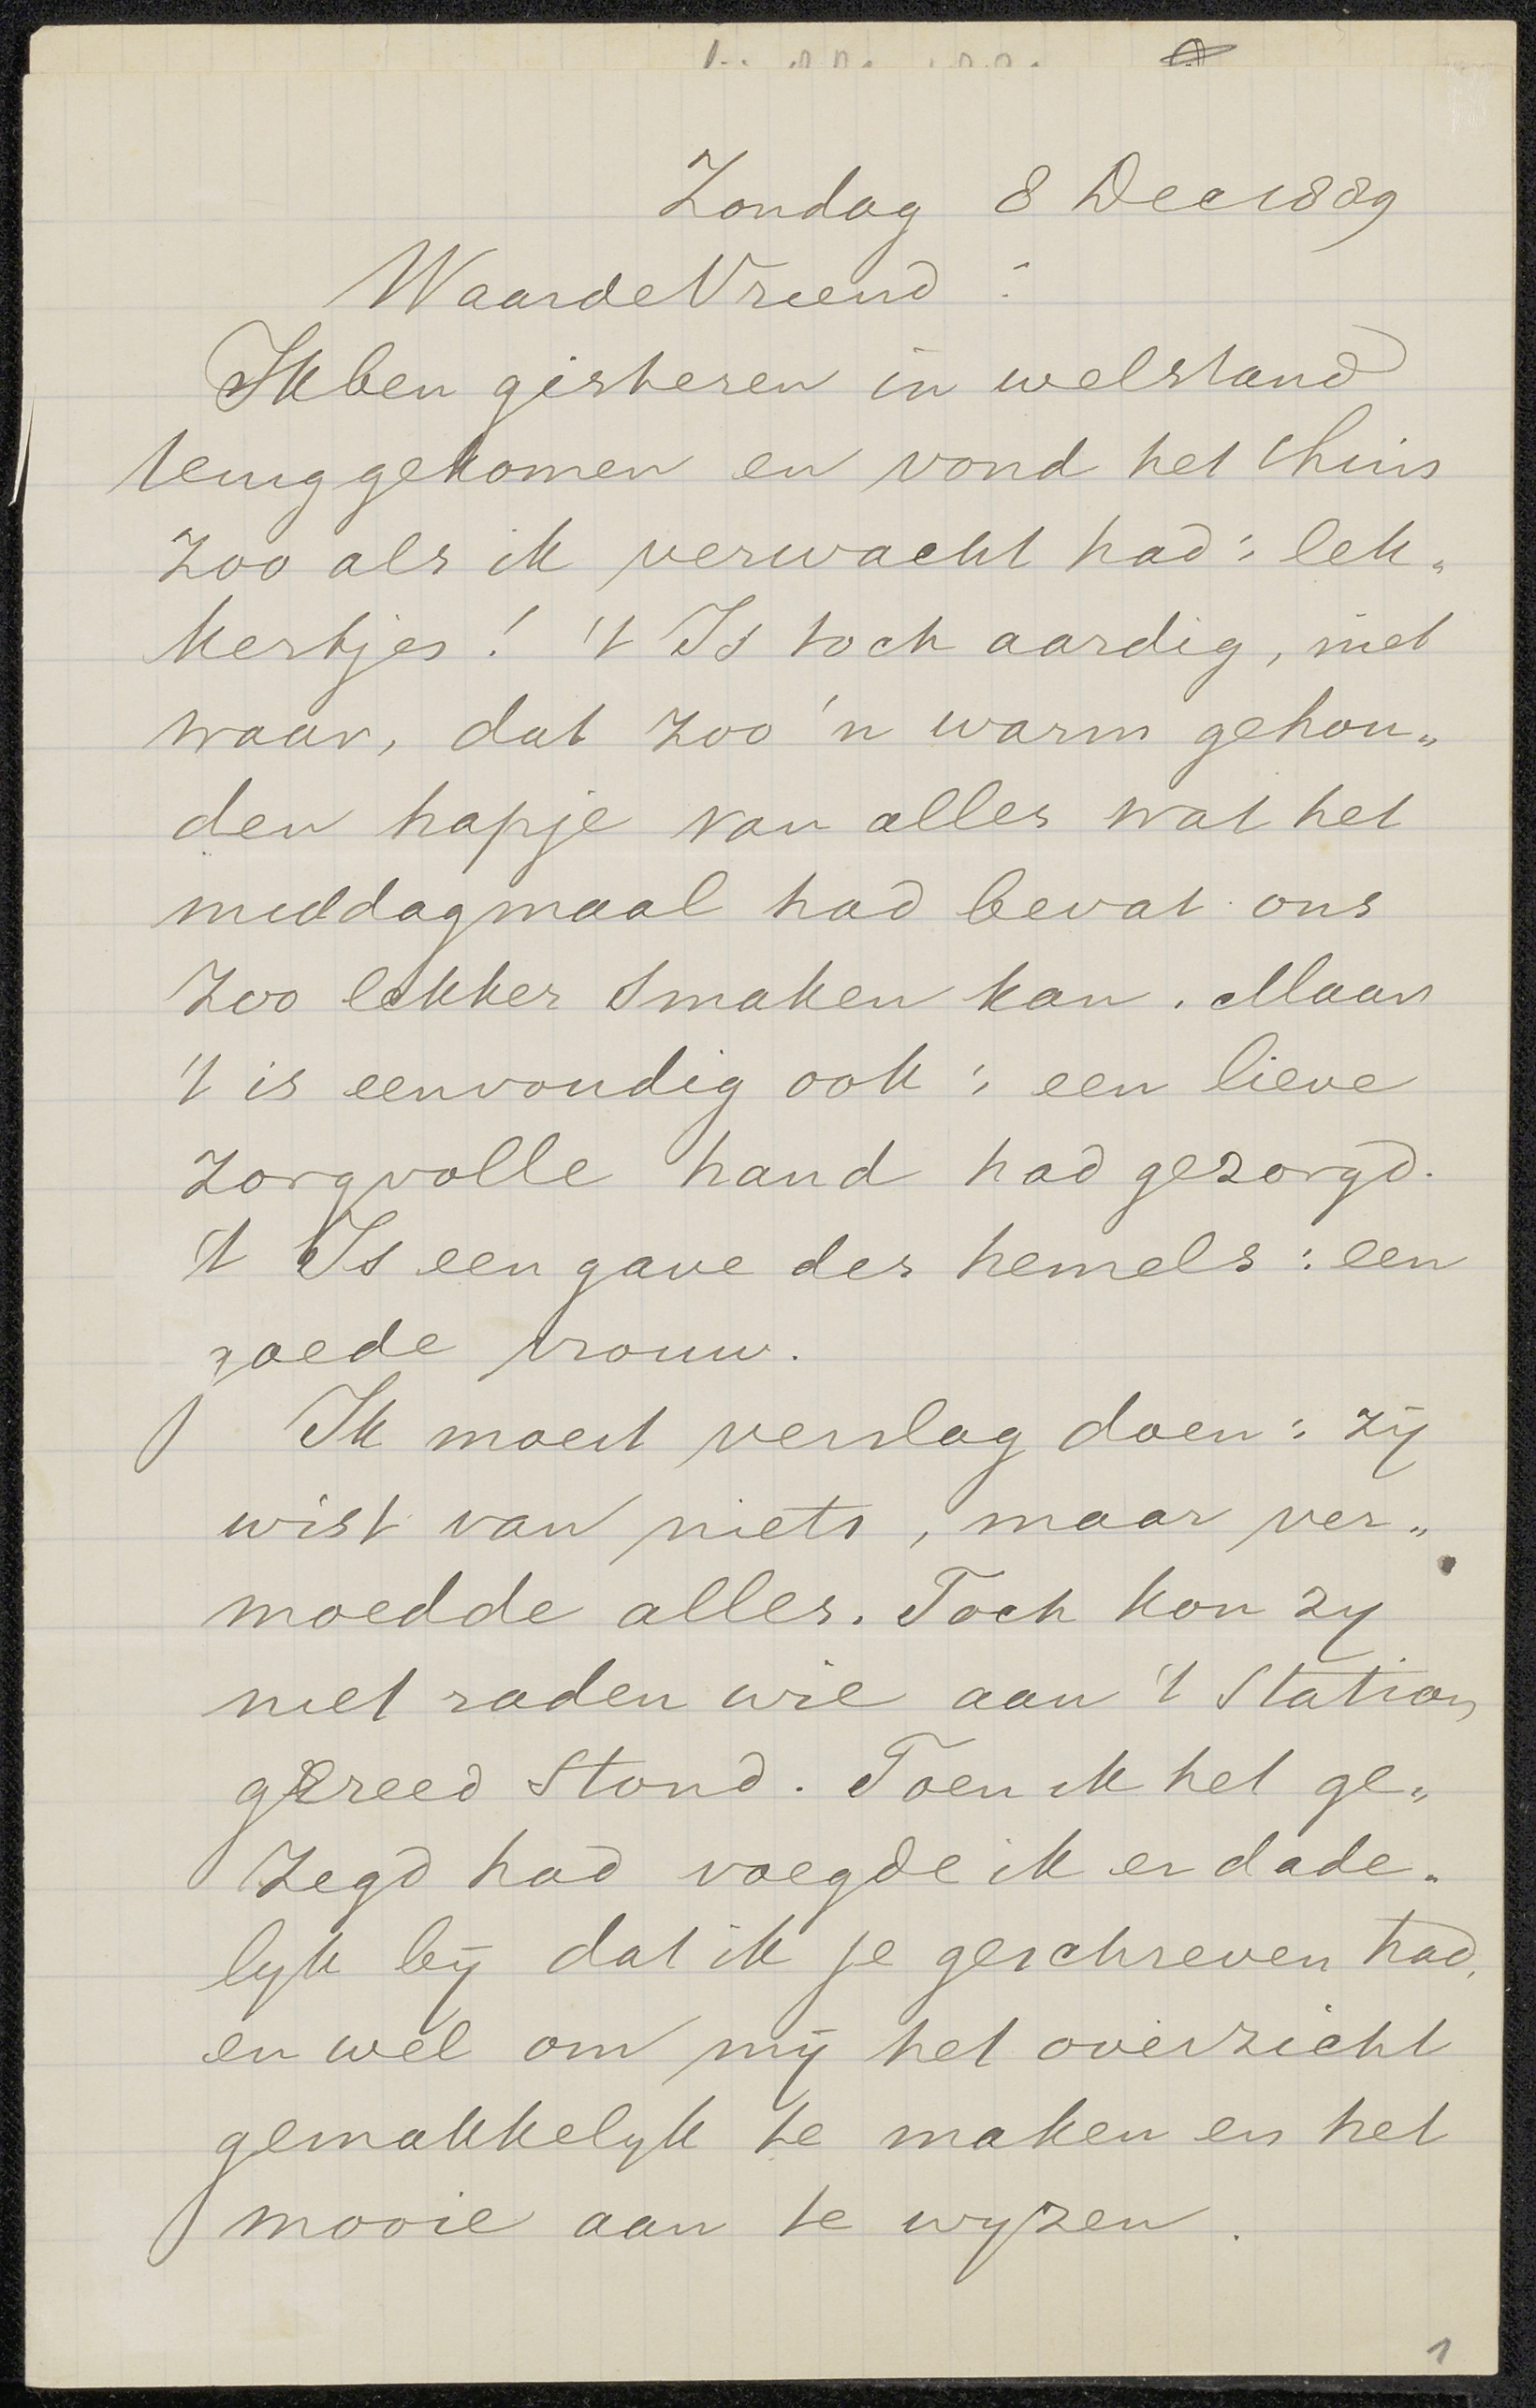 Zondag 8 Dec 1889
Waarde Vriend:
Ik ben gisteren in welstand
teruggekomen en vond het thuis
zoo als ik verwacht had: lek„
kertjes! 't Is toch aardig, niet
waar, dat zoo 'n warm gehou„
den hapje van alles wat het
middagmaal had bevat ons
zoo lekker smaken kan. Maar
't is eenvoudig ook: een lieve
zorgvolle hand had gezorgd.
't Is een gave des hemels: een
goede vrouw.
Ik moest verslag doen: zij
wist van niets, maar ver„
moedde alles. Toch kon zy
niet raden wie aan 't Station
gereed stond. Toen ik het ge„
zegd had voegde ik er dade„
lyk bij dat ik je geschreven had,
en wel om mij het overzicht
gemakkelyk te maken en het
mooie aan te wyzen.
1